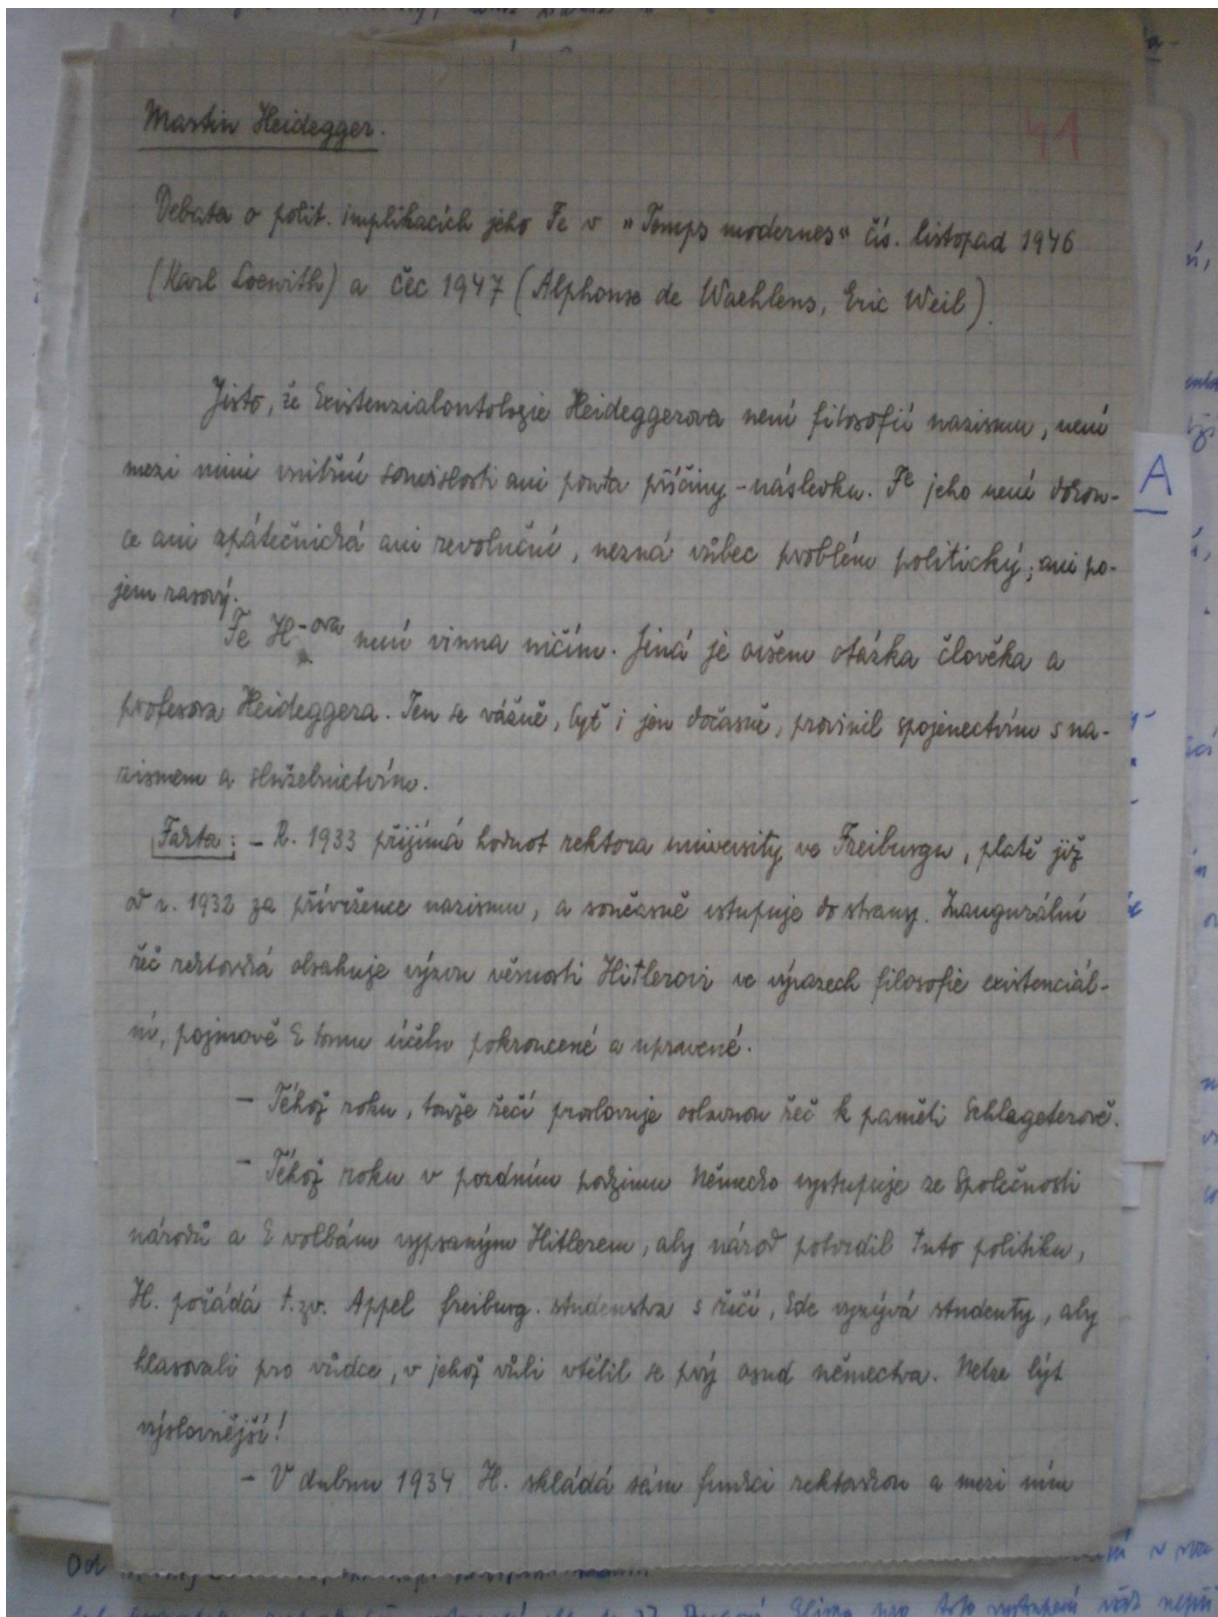 Martin Heidegger.
41
Debata o polit. implikacích jeho Fe v "Temps modernes" čís. listopad 1946
(Karl Loewith) a čec 1947 (Alphonse de Waehlens, Eric Weil).
Jisto, že Existenzialontologie Heideggerova není filosofií nazismu, není
mezi nimi vnitřní souvislosti ani pouta příčiny-následku. Fe jeho není dokon-
ce ani zpátečnická ani revoluční, nezná vůbec problém politický; ani po-
jem rasový.
Fe H-ova není vinna ničím. Jiná je ovšem otázka člověka a
profesora Heideggera. Ten se vážně, byť i jen dočasně, provinil spojenectvím s na-
zismem a služebnictvím.
Fakta: - R. 1933 přijímá hodnot rektora university ve Freiburgu, platě již
od r. 1932 za přívržence nazismu, a současně vstupuje do strany. Inaugurální
řeč rektorská obsahuje výzvu věrnosti Hitlerovi ve výrazech filosofie existenciál-
ní, pojmově k tomu účelu pokroucené a upravené.
- Téhož roku, touže řečí proslovuje oslavnou řeč k paměti Schlageterově.
- Téhož roku v pozdním podzimu Německo vystupuje ze Společnosti
národů a k volbám vypsaným Hitlerem, aby národ potvrdil tuto politiku,
H. pořádá t.zv. Appel freiburg. studenstva s řečí, kde vyzývá studenty, aby
hlasovali pro vůdce, v jehož vůli vtělil se prý osud němectva. Nelze být
výslovnější!
- V dubnu 1934 H. skládá sám funkci rektorskou a mezi ním
A
Od